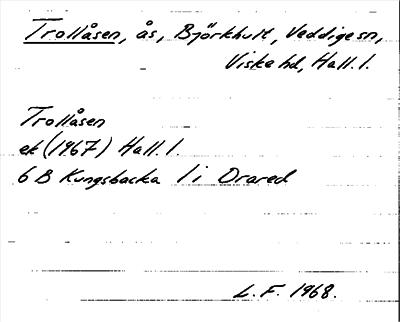 Trollåsen, ås, Björkhult, Veddige sn,
Viske hd, Hall. l.
Trollåsen
ek (1967) Hall. l.
6 B Kungsbacka 1 i Orared
L. F. 1968.